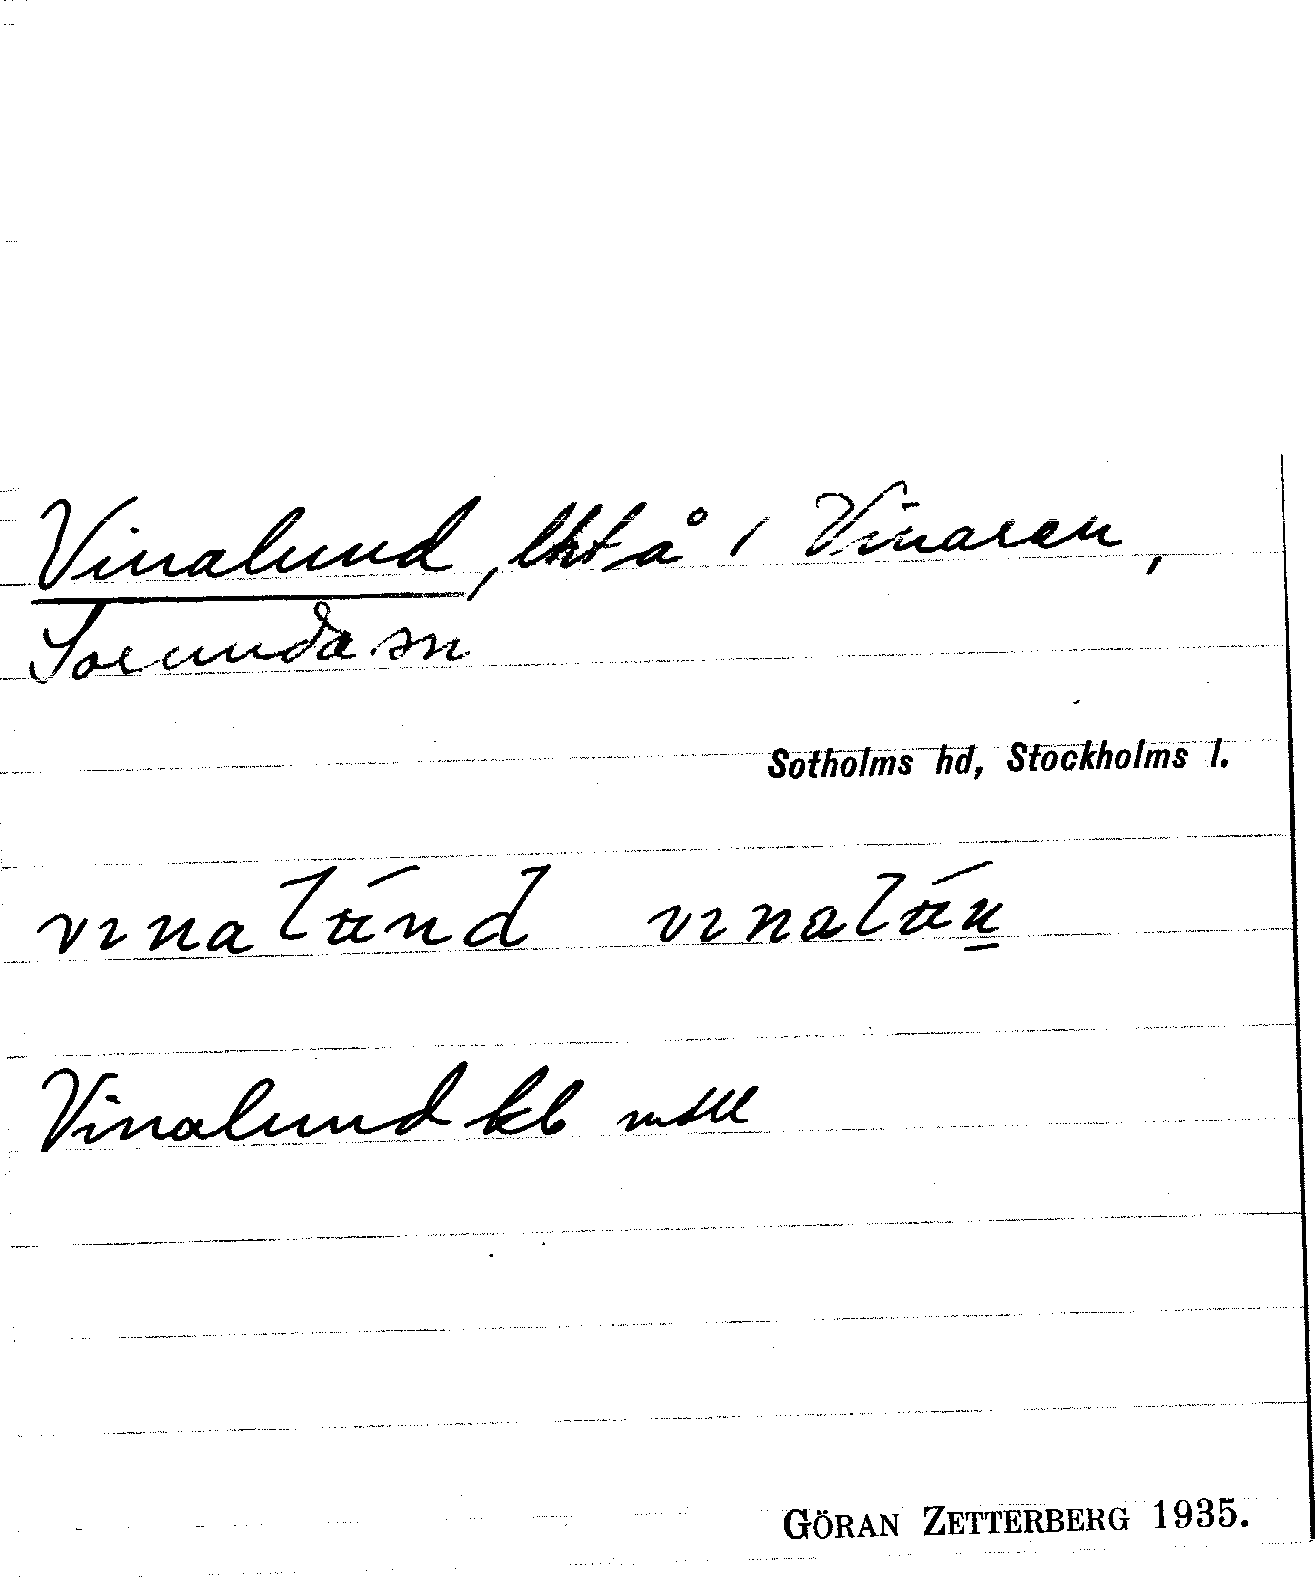 Vinalund, lht å 1 Vinaren,
Sorunda sn
Sotholms hd, Stockholms l.
vınalund vınalun
Vinalund kb
GÖRAN ZETTERBERG 1935.